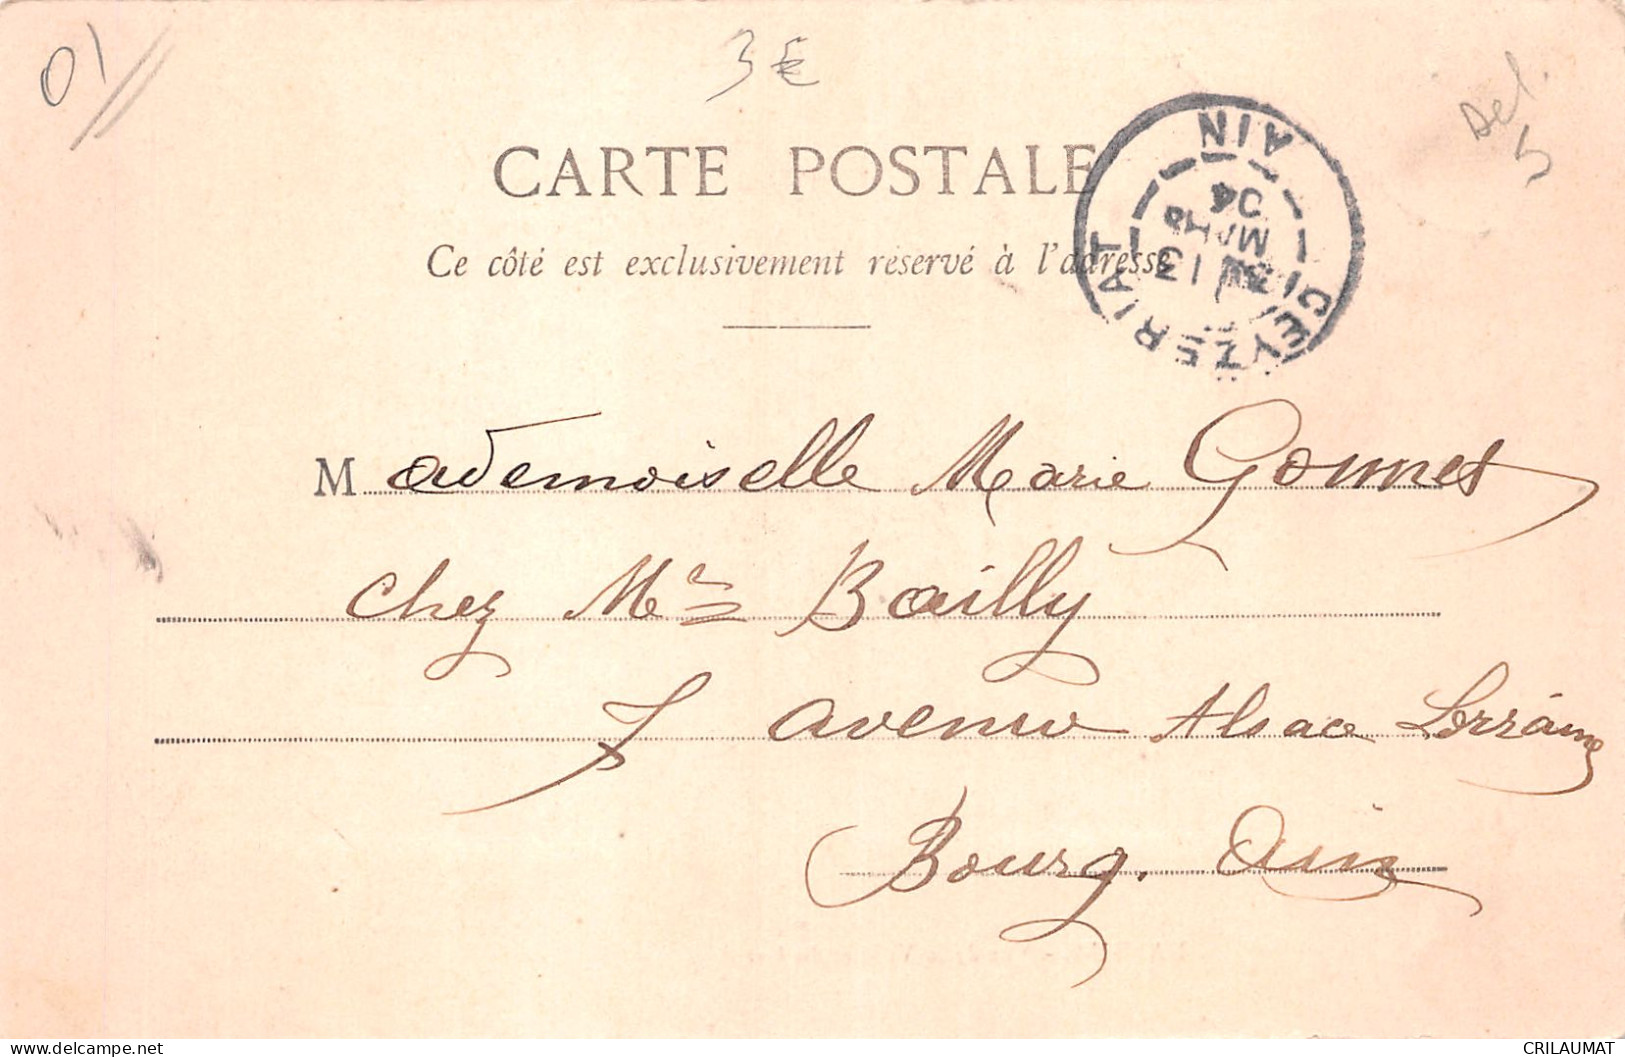 01
3 €
Del.
5
CARTE POSTALE
Ce côté est exclusivement réservé à l'adresse
CEYZERIAT
AIN
13
MARS
04
Mademoiselle Marie Gonnet
chez Mr Bailly
7 avenue Alsace Lorraine
Bourg. Ain
www.delcampe.net
CRILAUMAT